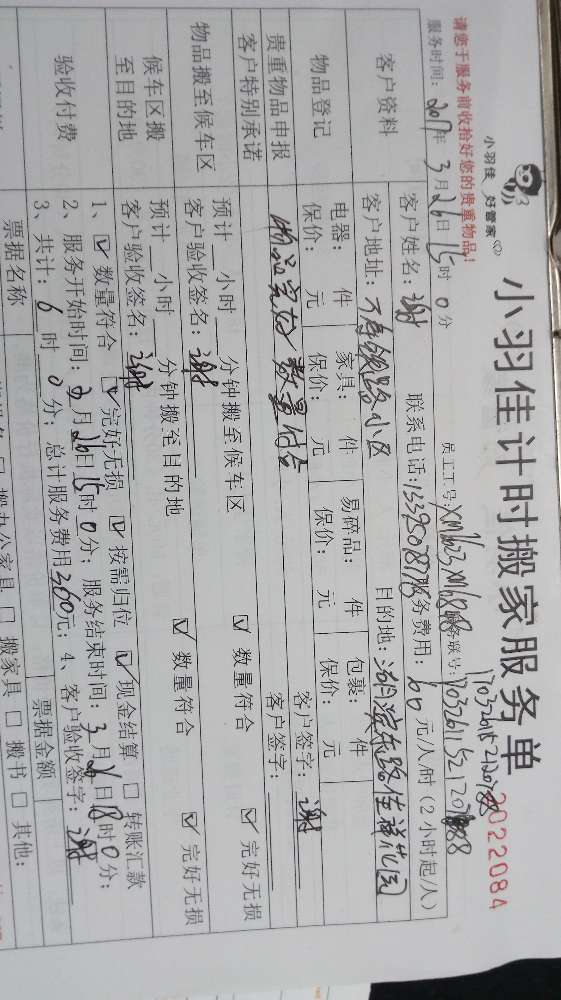 小羽佳 好管家
小羽佳计时搬家服务单
2022084
请您于服务前收拾好您的贵重物品!
员工工号:
服务时间: 2017年 3月26日 15时 0分
客户资料
客户姓名: 谢
联系电话:
服务费用: 60元/人/时 (2小时起/人)
客户地址:
目的地: 湖滨东路佳祥花园
物品登记
电器: 件 家具: 件 易碎品: 件 包裹: 件
保价: 元 保价: 元 保价: 元 保价: 元
客户签字: 谢
贵重物品申报
客户特别承诺
物品完好 数量符合
客户签字:
物品搬至候车区
预计 小时 分钟搬至候车区 ☑ 数量符合 ☑ 完好无损
客户验收签名: 谢
候车区搬
至目的地
预计 小时 分钟搬至目的地 ☑ 数量符合 ☑ 完好无损
客户验收签名: 谢
验收付费
1、☑ 数量符合 ☑ 完好无损 ☑ 按需归位 ☑ 现金结算 □ 转账汇款
2、服务开始时间: 3月26日15时0分; 服务结束时间: 3月26日18时0分;
3、共计: 6时0分; 总计服务费用360元; 4、客户验收签字: 谢
票据名称
票据金额
□ 搬办公家具 □ 搬家具 □ 搬书 □ 其他: